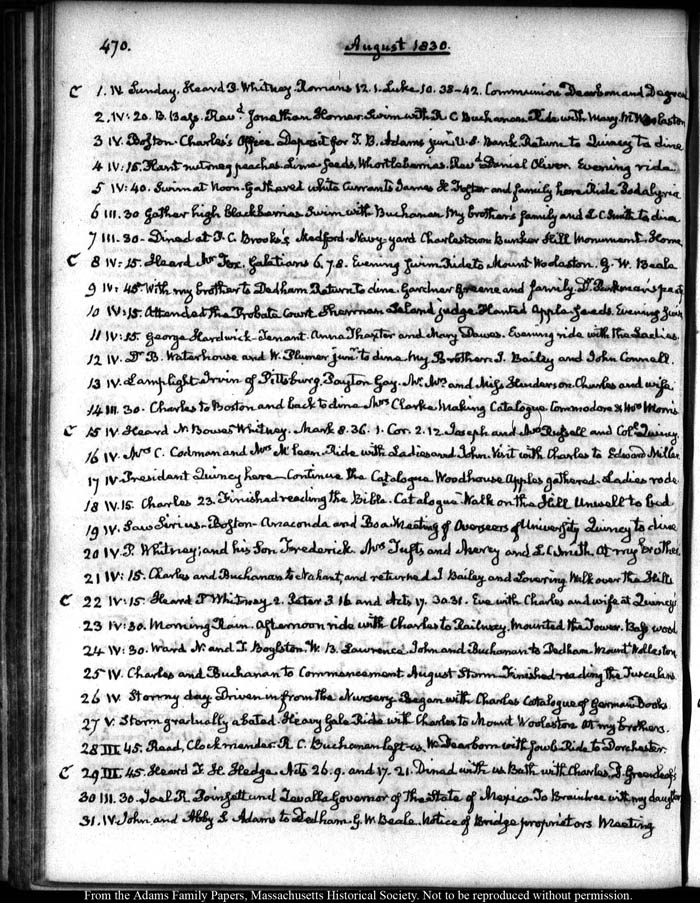 470. August 1830.
C 1. IV. Sunday. Heard P. Whitney. Romans 12. 1. Luke 10. 38-42. Communion Dearborn and
2. IV: 20. B. Bass. Revd. Jonathan Homer. Swim with R C Buchanan. Ride with Mary. Mt Woolaston
3 IV. Boston. Charles's Office Deposit for T. B. Adams junr. U.S. Bank. Return to Quincy to dine
4 IV: 15. Plant nutmeg peaches Lima seeds. Whortleberries. Revd Daniel Oliver. Evening ride
5 IV: 40. Swim at Noon. Gathered white Currants James H Foster and family here Ride
6 III. 30 Gather high Blackberries Swim with Buchanan. My brother's family and E C Smith to dine
7 III. 30- Dined at P. C. Brooks's Medford. Navy-yard Charlestown Bunker Hill Monument. Home
C 8 IV: 15. Heard Mr Fox. Galatians 6. 7. 8. Evening Swim Ride to Mount Woolaston. G. W. Beale
9 IV: 45. With my brother to Dedham Return to dine. Gardner Greene and family. Dr. Parkman's
10 IV: 15. Attended the Probate Court Sherman Leland judge. Planted Apple-seeds. Evening Swim
11 IV: 15. George Hardwick-Tenant. Anna Thaxter and Mary Dawes. Evening ride with the Ladies.
12 IV. Dr B. Waterhouse and W. Plumer junr. to dine. My Brother. I. Bailey and John Connell
13 IV. Lamplight Irwin of Pittsburg. Payton Gay. Mr. Mrs and Miss Henderson. Charles and wife.
14 III. 30. Charles to Boston and back to dine Mrs Clarke. Making Catalogue. Commodore & Mrs Morris
C 15 IV Heard N Bowes Whitney. Mark 8. 36. 1. Cor. 2. 12. Joseph and Mrs Russell and Coll. Quincy
16 IV. Mrs C. Codman and Mrs McLean. Ride with Ladies and John. Visit with Charles to Edward Miller
17 IV. President Quincy here- Continue the Catalogue Woodhouse Apples gathered. Ladies rode
18 IV. 15. Charles 23. Finished reading the Bible. Catalogue Walk on the Hill Unwell to bed
19 IV. Saw Sirius- Boston Anaconda and Boa Meeting of Overseers of University Quincy to dine
20 IV. P. Whitney, and his Son Frederick. Mrs Tufts and Mercy and E C Smith at my brother
21 IV: 15. Charles and Buchanan to Nahant and returned. I Bailey and Lovering Walk over the Hills
C 22 IV: 15. Heard P Whitney. 2. Peter 3. 16 and Acts 17. 30. 31. Eve with Charles and wife at Quincy's
23 IV: 30. Morning Rain. Afternoon ride with Charles to Railway. Mounted the Tower. Bass wood
24 IV: 30. Ward N. and T. Boylston. W. B. Lawrence John and Buchanan to Dedham Mount Wollaston
25 IV. Charles and Buchanan to Commencement August Storm. Finished reading the Tusculans
26 IV. Stormy day. Driven in from the Nursery. Began with Charles Catalogue of German Books
27 V. Storm gradually abated. Heavy Gale Ride with Charles to Mount Woolaston. At my brothers.
28 III 45. Read, Clock mender. R. C. Buchanan left us. W. Dearborn with fowls Ride to Dorchester.
C 29 III. 45. Heard F. H. Hedge. Acts 26. 9. and 17. 21. Dined with us Bath with Charles. D. Greenleaf's
30 III. 30. Joel R. Poinsett and Zavalla Governor of the State of Mexico. To Braintree with my daughter
31. IV. John and Abby S Adams to Dedham. G. W Beale. Notice of Bridge proprietors Meeting
From the Adams Family Papers, Massachusetts Historical Society. Not to be reproduced without permission.